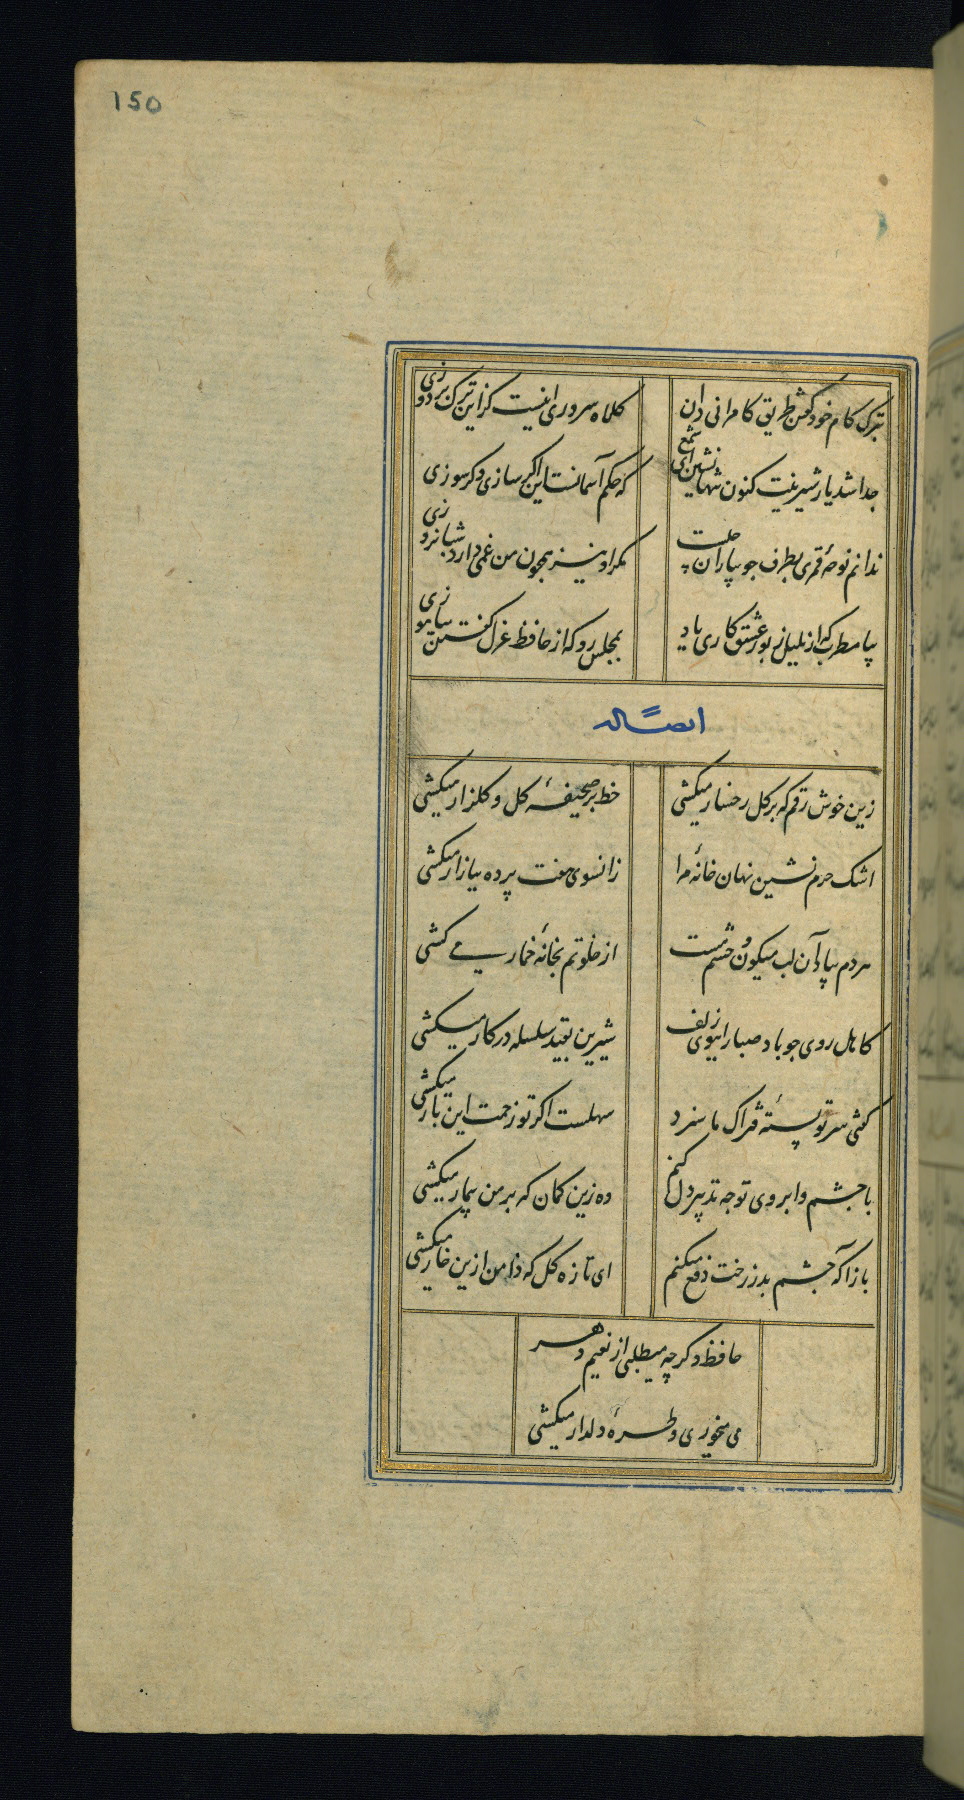 150
بترک کام خود گفتن طریق کامرانی دان
کلاه سروری اینست کز این ترک بردوزی
جدا شد یار شیرینت کنون تنها نشین ای شمع
که حکم آسمانست این اگر سازی وگر سوزی
ندانم نوحهٔ قمری بطرف جویباران چیست
مگر او نیز همچون من غمی دارد شبانروزی
ببلبل عشق
بمجلس رو که از حافظ غزل گفتن بیاموزی
ایضاً له
زین خوش رقم که بر گل رخسار میکشی
خط بر صحیفهٔ گل و گلزار میکشی
اشک حرم نشین نهان خانهٔ مرا
زانسوی هفت پرده ببازار میکشی
هر دم بیاد آن لب میگون و چشم مست
از خلوتم بخانهٔ خمار می کشی
کاهل روی چو باد صبا را ببوی زلف
شیرین بقید سلسله در کار میکشی
گفتی سر تو بستهٔ فتراک ما سزد
سهلست اگر تو زحمت این بار میکشی
با چشم و ابروی تو چه تدبیر دل کنم
وه زین کمان که بر من بیمار میکشی
بازآ که چشم بد ز رخت دفع میکنم
ای تازه گل که دامن ازین خار میکشی
حافظ دگر چه میطلبی از نعیم دهر
می میخوری و طرهٔ دلدار میکشی